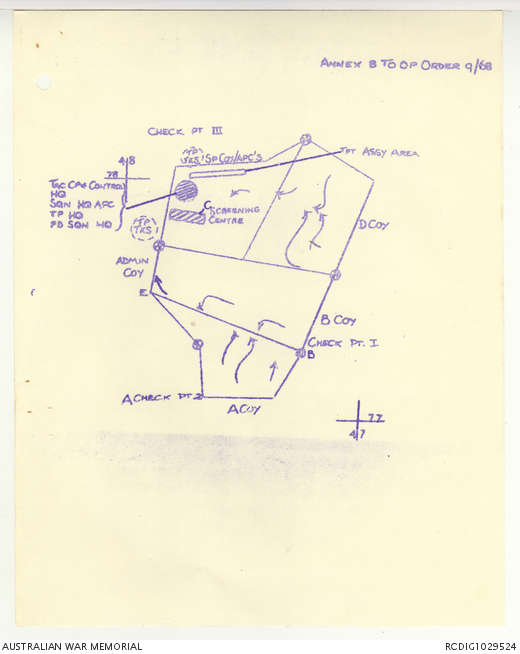 ANNEX B TO OP ORDER 9/68
CHECK PT III
SP COY/APC'S
TPT ASSY AREA
4 8
78
TAC CP & CONTROL
HQ
SQN HQ APC
TP HQ
FD SQN HQ
C
SCREENING
CENTRE
TRS
D COY
ADMIN
COY
E
B COY
CHECK PT. I
B
A CHECK PT. 2
A COY
77
4 7
AUSTRALIAN WAR MEMORIAL
RCDIG1029524